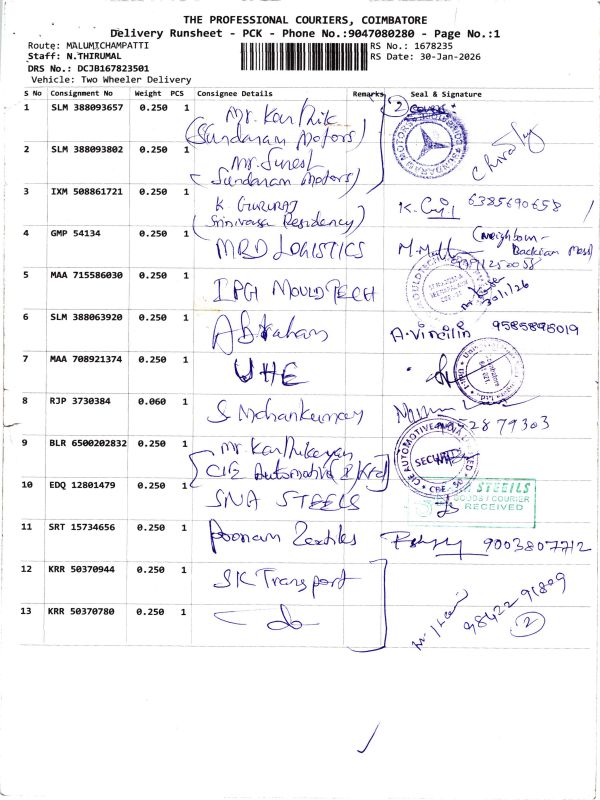 THE PROFESSIONAL COURIERS, COIMBATORE
Delivery Runsheet - PCK - Phone No.:9047080280 - Page No.:1
Route: MALUMICHAMPATTI
RS No.: 1678235
Staff: N.THIRUMAL
RS Date: 30-Jan-2026
DRS No.: DCJB167823501
Vehicle: Two Wheeler Delivery
S No Consignment No Weight PCS Consignee Details Remarks Seal & Signature
1 SLM 388093657 0.250 1 Mr. Karthik
(Sundaram Motors)
2
2 SLM 388093802 0.250 1 Mr. Suresh
(Sundaram Motors)
3 IXM 508861721 0.250 1 K GURURAJ
(Srinivasa Residency)
6385690658
4 GMP 54134 0.250 1 MRD LOGISTICS
(Neighbour-
5 MAA 715586030 0.250 1 IPG MOULD TECH
30/1/26
6 SLM 388063920 0.250 1 Abraham A. Vincilin 9585895019
7 MAA 708921374 0.250 1 UHE
8 RJP 3730384 0.060 1 S Mohankumar
9 BLR 6500202832 0.250 1 Mr Karthikeyan
CIE Automotive
CIE AUTOMOTIVE INDIA LIMITED
SECURITY
CBE - 50
10 EDQ 12801479 0.250 1 SNA STEELS
STEEILS
GOODS / COURIER
RECEIVED
11 SRT 15734656 0.250 1 Poonam Textiles 9003807712
12 KRR 50370944 0.250 1 SK Transport
13 KRR 50370780 0.250 1 do
9842291809
2